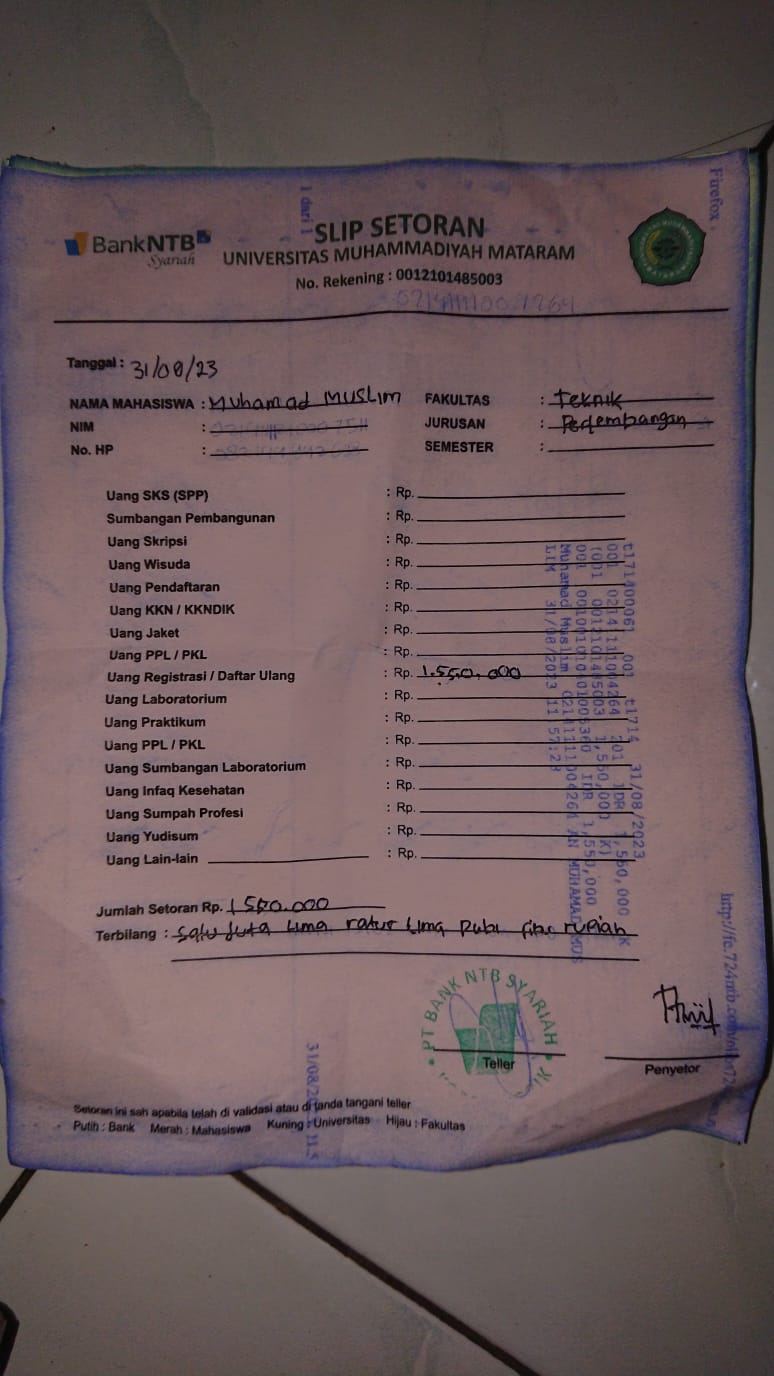 Firefox
1 dari 1
BankNTB
Syariah
SLIP SETORAN
UNIVERSITAS MUHAMMADIYAH MATARAM
No. Rekening : 0012101485003
Tanggal : 31/08/23
NAMA MAHASISWA : Muhamad Muslim
NIM :
No. HP :
FAKULTAS : Teknik
JURUSAN : Pertembangan
SEMESTER :
Uang SKS (SPP) : Rp.
Sumbangan Pembangunan : Rp.
Uang Skripsi : Rp.
Uang Wisuda : Rp.
Uang Pendaftaran : Rp.
Uang KKN / KKNDIK : Rp.
Uang Jaket : Rp.
Uang PPL / PKL : Rp.
Uang Registrasi / Daftar Ulang : Rp. 1.550.000
Uang Laboratorium : Rp.
Uang Praktikum : Rp.
Uang PPL / PKL : Rp.
Uang Sumbangan Laboratorium : Rp.
Uang Infaq Kesehatan : Rp.
Uang Sumpah Profesi : Rp.
Uang Yudisum : Rp.
Uang Lain-lain : Rp.
t171400061 001 t1714 31/08/2023
001 201 IDR 1,550,000 K
001 0012101485003 1,550,000 K)
001 IDR 1,550,000
Muhamad Muslim AN MUHAMAD MUS
LIM 31/08/2023 11:57:23
Jumlah Setoran Rp. 1550.000
Terbilang : Satu Juta Lima ratus Lima Pulu ribu rupiah
PT BANK NTB SYARIAH
Teller
Penyetor
Setoran ini sah apabila telah di validasi atau di tanda tangani teller
Putih : Bank Merah : Mahasiswa Kuning : Universitas Hijau : Fakultas